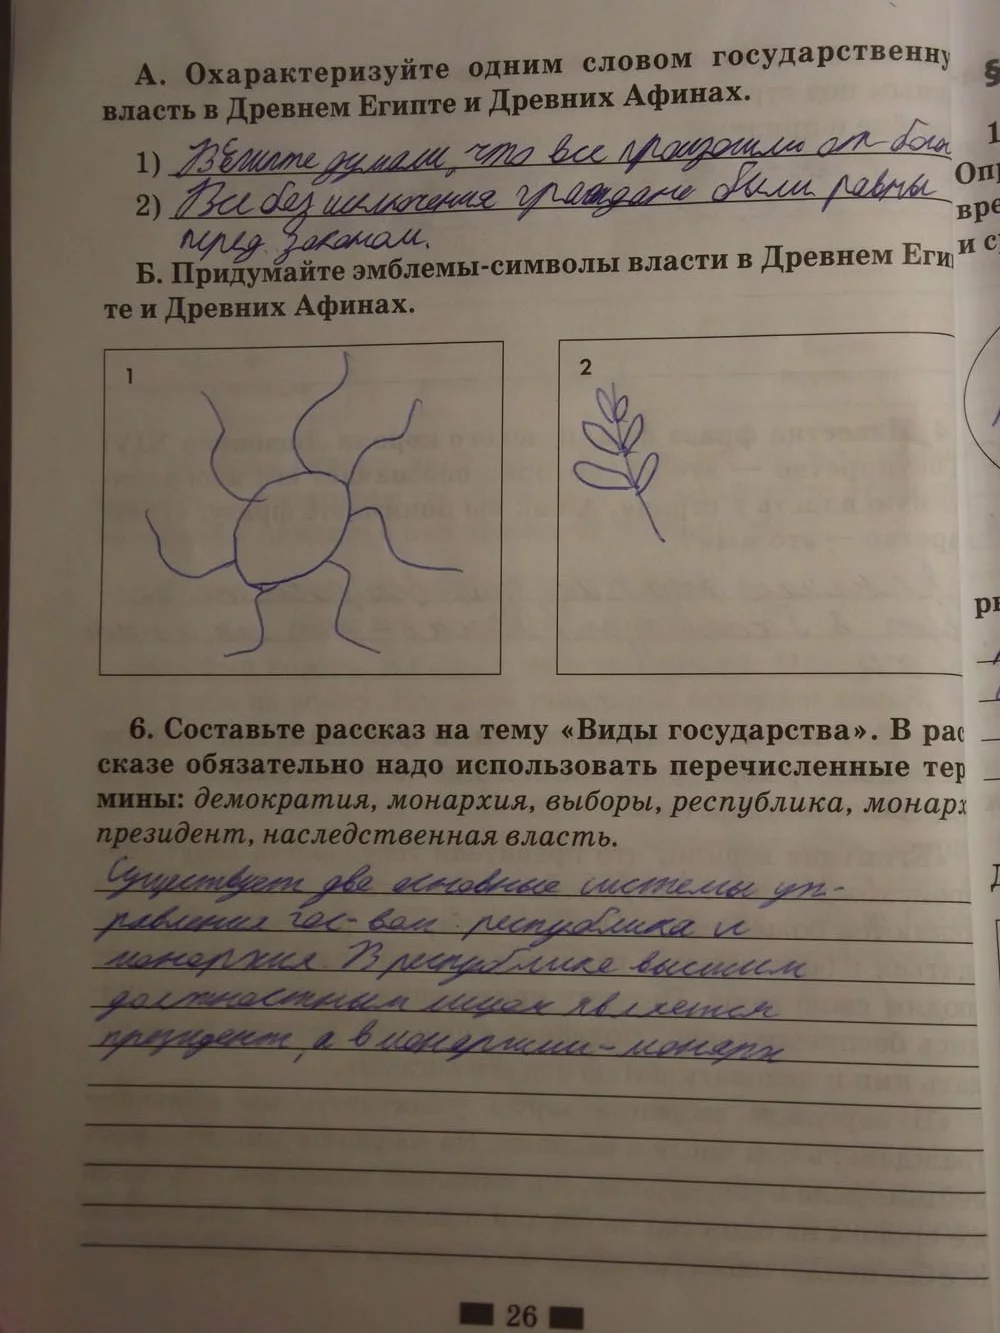 А. Охарактеризуйте одним словом государственну
власть в Древнем Египте и Древних Афинах.
1) В Египте думали, что все произошли от бога
2) Все без исключения граждане были равны
перед законом.
Б. Придумайте эмблемы-символы власти в Древнем Еги
те и Древних Афинах.
1
2
6. Составьте рассказ на тему «Виды государства». В рас
сказе обязательно надо использовать перечисленные тер
мины: демократия, монархия, выборы, республика, монарх
президент, наследственная власть.
Существует две основные системы уп-
равления гос-вом: республика и
монархия. В республике высшим
должностным лицом является
президент, а в монархии - монарх
26
§
1
Опр
вре
и с
рь